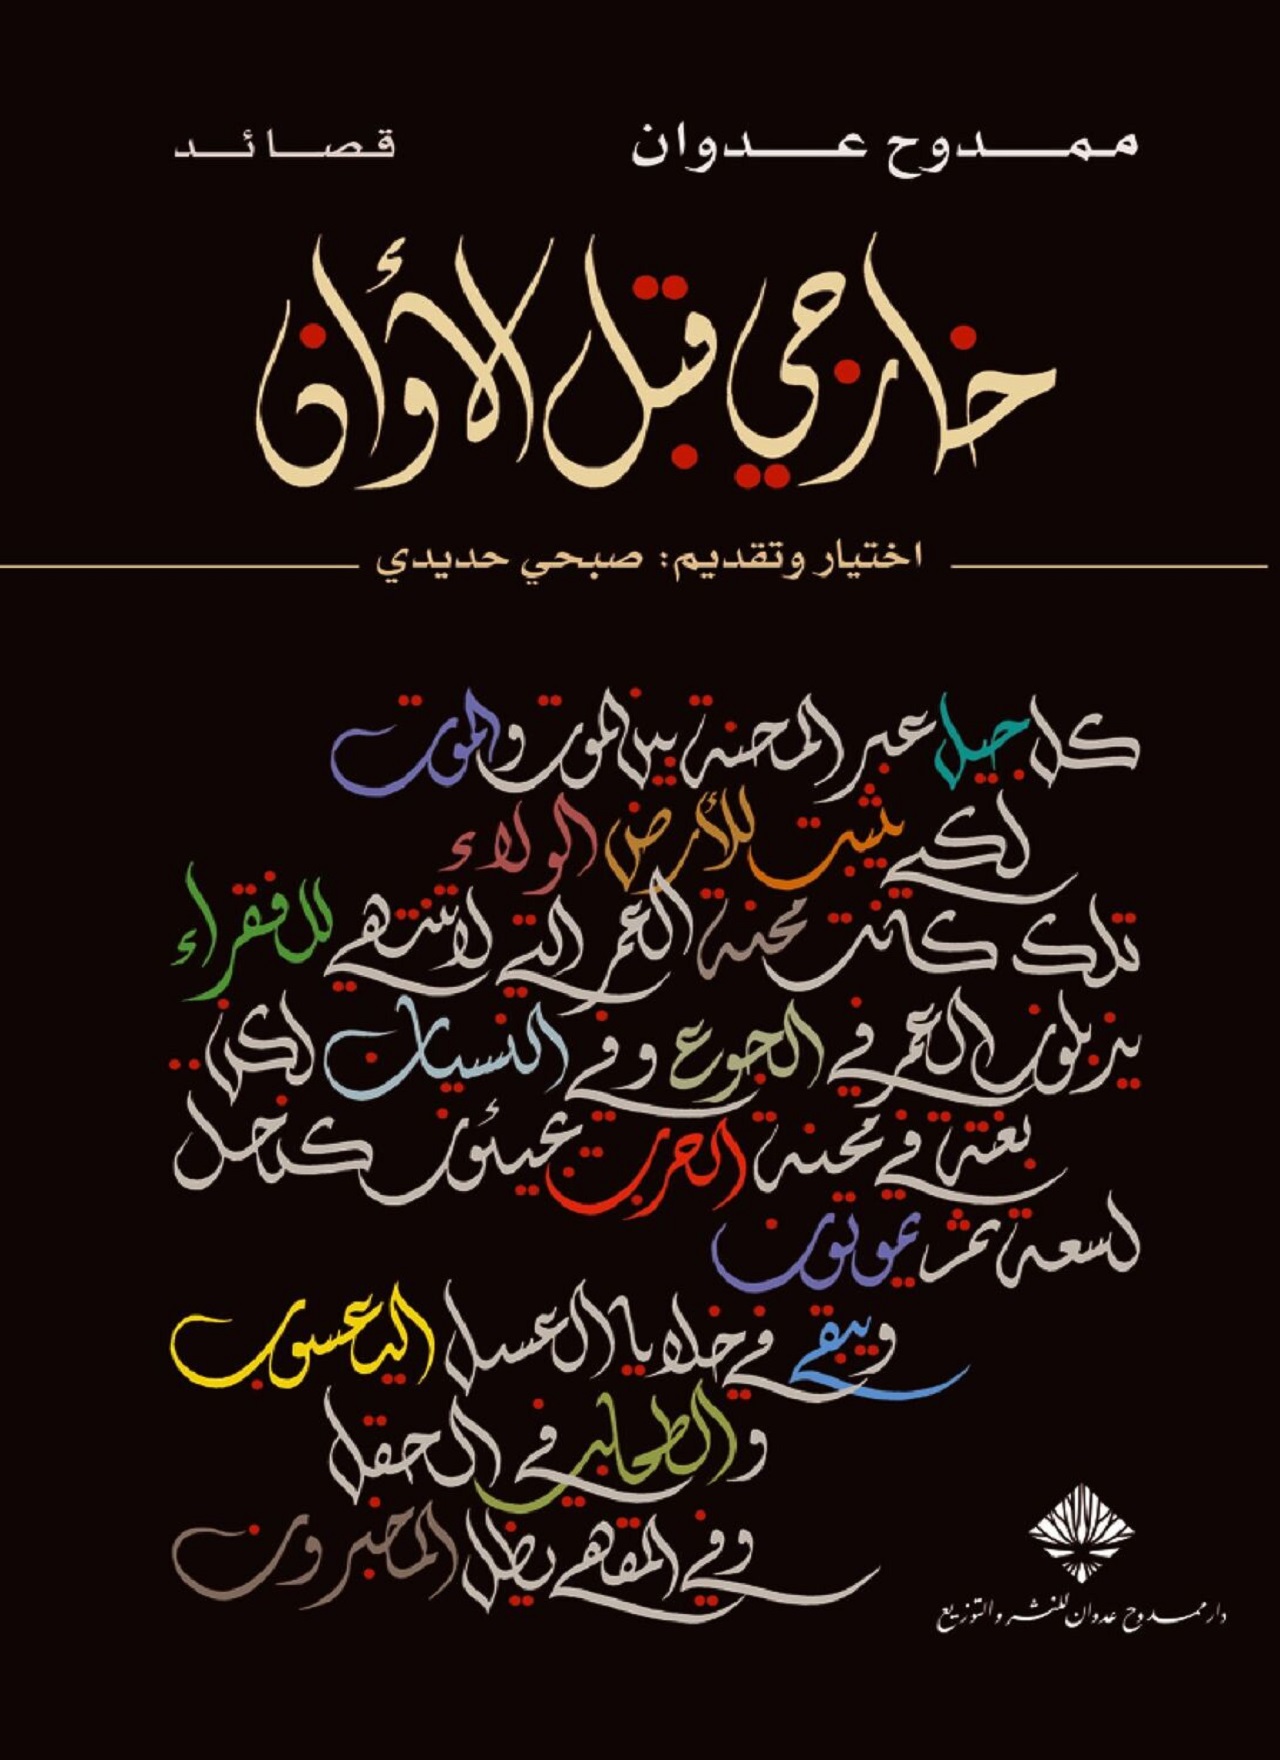 ممدوح عدوان
قصائد
خارجي قبل الأوان
اختيار وتقديم: صبحي حديدي
كل جيل عبر المحنة بين الموت والموت
لكي يثبت للأرض الولاء
تلك كانت محنة العمر التي لا تنتهي للفقراء
يذبلون العمر في الجوع وفي النسيان لكن..
بغتة في محنة الحرب يجيئون كنحل
لسعة ثم يموتون
ويبقى في خلايا العسل اليعسوب
والطحلب في الحقل
وفي المقهى يظل المخبرون
دار ممدوح عدوان للنشر والتوزيع